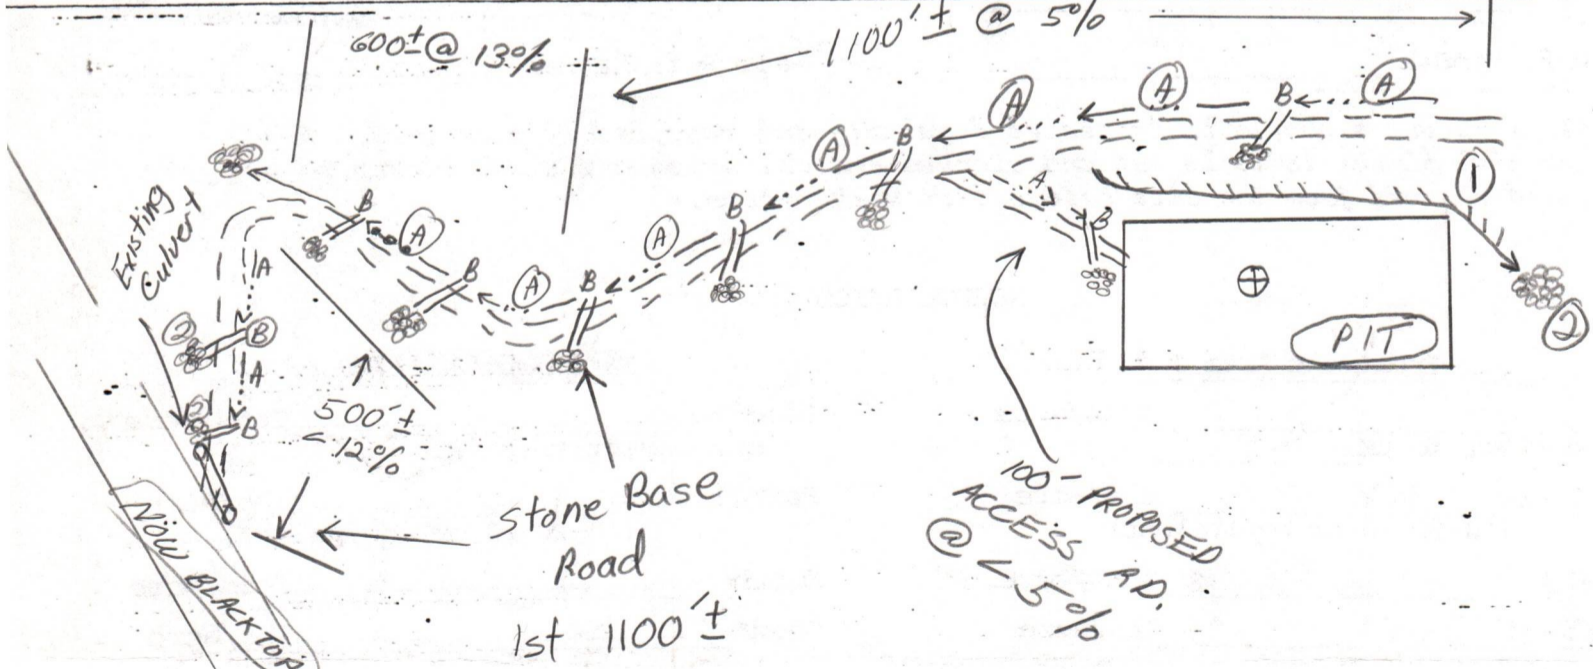 600± @ 13%
1100'± @ 5%
A
A
A
B
B
A
1
A
B
B
B
A
A
Existing
Culvert
B
A
B
A
B
A
2
B
A
B
PIT
2
500'±
< 12%
Stone Base
Road
1st 1100'±
100'- PROPOSED
ACCESS RD.
@ < 5%
NOW BLACKTOP